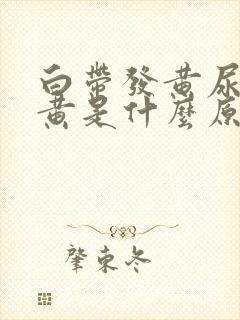 白帶發黃尿
黃是什麼原
肇東冬